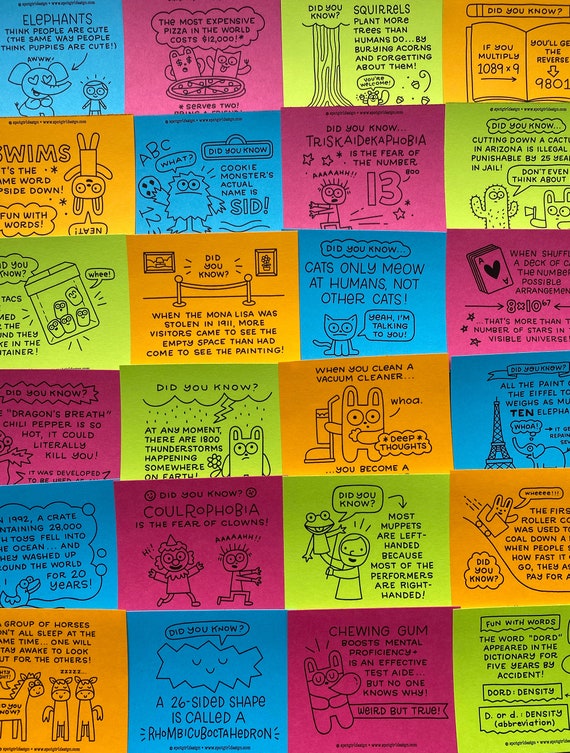 ELEPHANTS
THINK PEOPLE ARE CUTE
(THE SAME WAY PEOPLE
THINK PUPPIES ARE CUTE!)
AWWW!
© spotgirldesign • www.spotgirldesign.com
THE MOST EXPENSIVE
PIZZA IN THE WORLD
COSTS $12,000!*
* SERVES TWO!
BRING A FRIEND!
DID YOU
KNOW?
SQUIRRELS
PLANT MORE
TREES THAN
HUMANS DO...BY
BURYING ACORNS
AND FORGETTING
ABOUT THEM!
YOU'RE
WELCOME!
DID YOU KNOW?
IF YOU
MULTIPLY
1089 x 9
YOU'LL GE
THE
REVERSE
9801
SWIMS
IT'S THE
SAME WORD
UPSIDE DOWN!
FUN WITH
WORDS!
NEAT!
ABC
WHAT?
DID YOU KNOW
COOKIE
MONSTER'S
ACTUAL
NAME IS
SID!
DID YOU KNOW...
TRISKAIDEKAPHOBIA
IS THE FEAR OF
THE NUMBER
13
AAAAHH!
BOO
DID YOU KNOW...
CUTTING DOWN A CACTU
IN ARIZONA IS ILLEGAL
PUNISHABLE BY 25 YEAR
IN JAIL!
DON'T EVEN
THINK ABOUT
YOU
KNOW?
TACS
MED
R THE
UND THEY
KE IN THE
TAINER!
whee!
DID
YOU
KNOW?
WHEN THE MONA LISA WAS
STOLEN IN 1911, MORE
VISITORS CAME TO SEE THE
EMPTY SPACE THAN HAD
COME TO SEE THE PAINTING!
DID YOU KNOW...
CATS ONLY MEOW
AT HUMANS, NOT
OTHER CATS!
YEAH, I'M
TALKING TO
YOU!
A
WHEN SHUFFL
A DECK OF CA
THE NUMBER
POSSIBLE
ARRANGEMEN
8x10⁶⁷
...THAT'S MORE THAN T
NUMBER OF STARS IN T
VISIBLE UNIVERSE!
DID YOU KNOW?
"DRAGON'S BREATH"
CHILI PEPPER IS SO
HOT, IT COULD
LITERALLY
KILL YOU!
IT WAS DEVELOPED
DID YOU KNOW?
AT ANY MOMENT,
THERE ARE 1800
THUNDERSTORMS
HAPPENING
SOMEWHERE
ON EARTH!
WHEN YOU CLEAN A
VACUUM CLEANER...
whoa.
*DEEP*
THOUGHTS
...YOU BECOME A
DID YOU KNOW?
ALL THE PAINT O
THE EIFFEL TO
WEIGHS AS MU
TEN ELEPHA
WHOA!
IT GE
REPAIN
SEV
N 1992, A CRATE
NTAINING 28,000
TH TOYS FELL INTO
E OCEAN... AND
HEY WASHED UP
OUND THE WORLD
FOR 20
YEARS!
DID YOU KNOW?
COULROPHOBIA
IS THE FEAR OF CLOWNS!
HI!
AAAAHH!!
DID YOU
KNOW?
MOST
MUPPETS
ARE LEFT-
HANDED
BECAUSE
MOST OF THE
PERFORMERS
ARE RIGHT-
HANDED!
wheeee!!!
THE FIRS
ROLLER CO
WAS USED TO
COAL DOWN A
WHEN PEOPLE S
HOW FAST IT C
GO, THEY AS
PAY FOR A
DID
YOU
KNOW?
A GROUP OF HORSES
ON'T ALL SLEEP AT THE
ME TIME... ONE WILL
TAY AWAKE TO LOOK
UT FOR THE OTHERS!
ZZZZ..
KNOW?
© spotgirldesign • www.spotgirldesign.com
DID YOU KNOW?
A 26-SIDED SHAPE
IS CALLED A
RHOMBICUBOCTAHEDRON
© spotgirldesign • www.spotgirldesign.com
CHEWING GUM
BOOSTS MENTAL
PROFICIENCY+
IS AN EFFECTIVE
TEST AIDE...
BUT NO ONE
KNOWS WHY!
WEIRD BUT TRUE!
FUN WITH WORDS
THE WORD "DORD"
APPEARED IN THE
DICTIONARY FOR
FIVE YEARS BY
ACCIDENT!
DORD: DENSITY
D. or d.: DENSITY
(abbreviation)